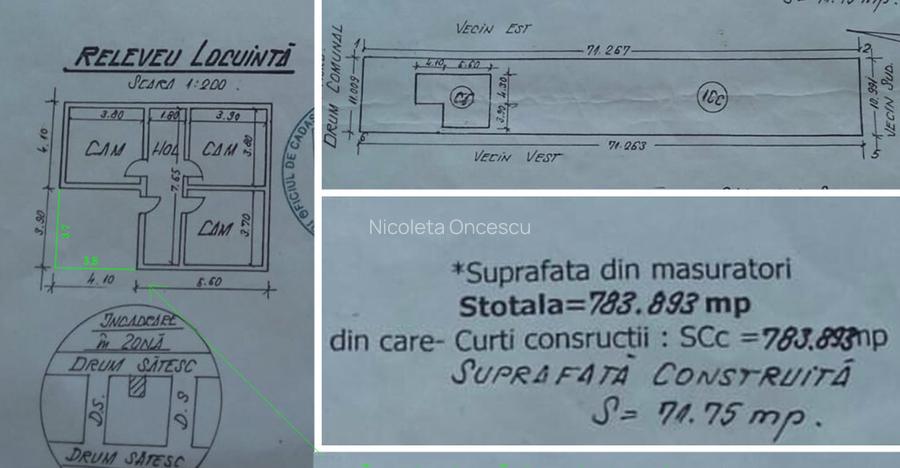 RELEVEU LOCUINTĂ
SCARA 1:200.
3.80 1.80 3.90
4.10
CAM HOL CAM 3.80
7.65
3.90 3.7
CAM 3.70
3.8
4.10 6.60
OFICIUL DE CADAS
ÎNCADRARE
în ZONĂ
DRUM SĂTESC
D.S. D.S
DRUM SĂTESC
VECIN EST
1 71.267 2
4.10 6.60
DRUM COMUNAL
11.009
4.30
3.90
C1
1Cc
10.991
VECIN SUD
6 71.263 5
VECIN VEST
Nicoleta Oncescu
*Suprafata din masuratori
Stotala=783.893 mp
din care- Curti consructii : SCc =783.893mp
SUPRAFATĂ CONSTRUITĂ
S= 71.75 mp.